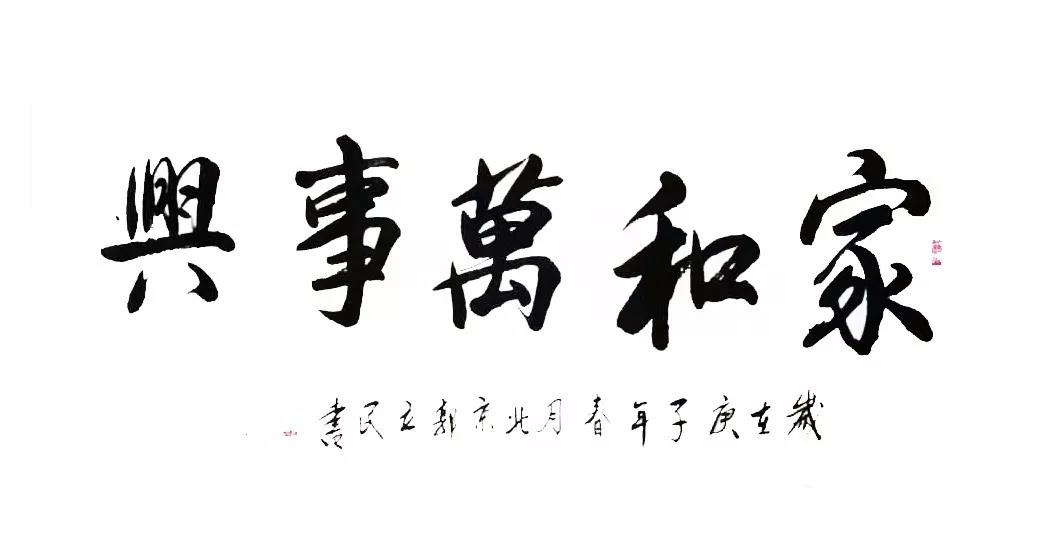 家和萬事興
歲在庚子年春月北京郭立民書